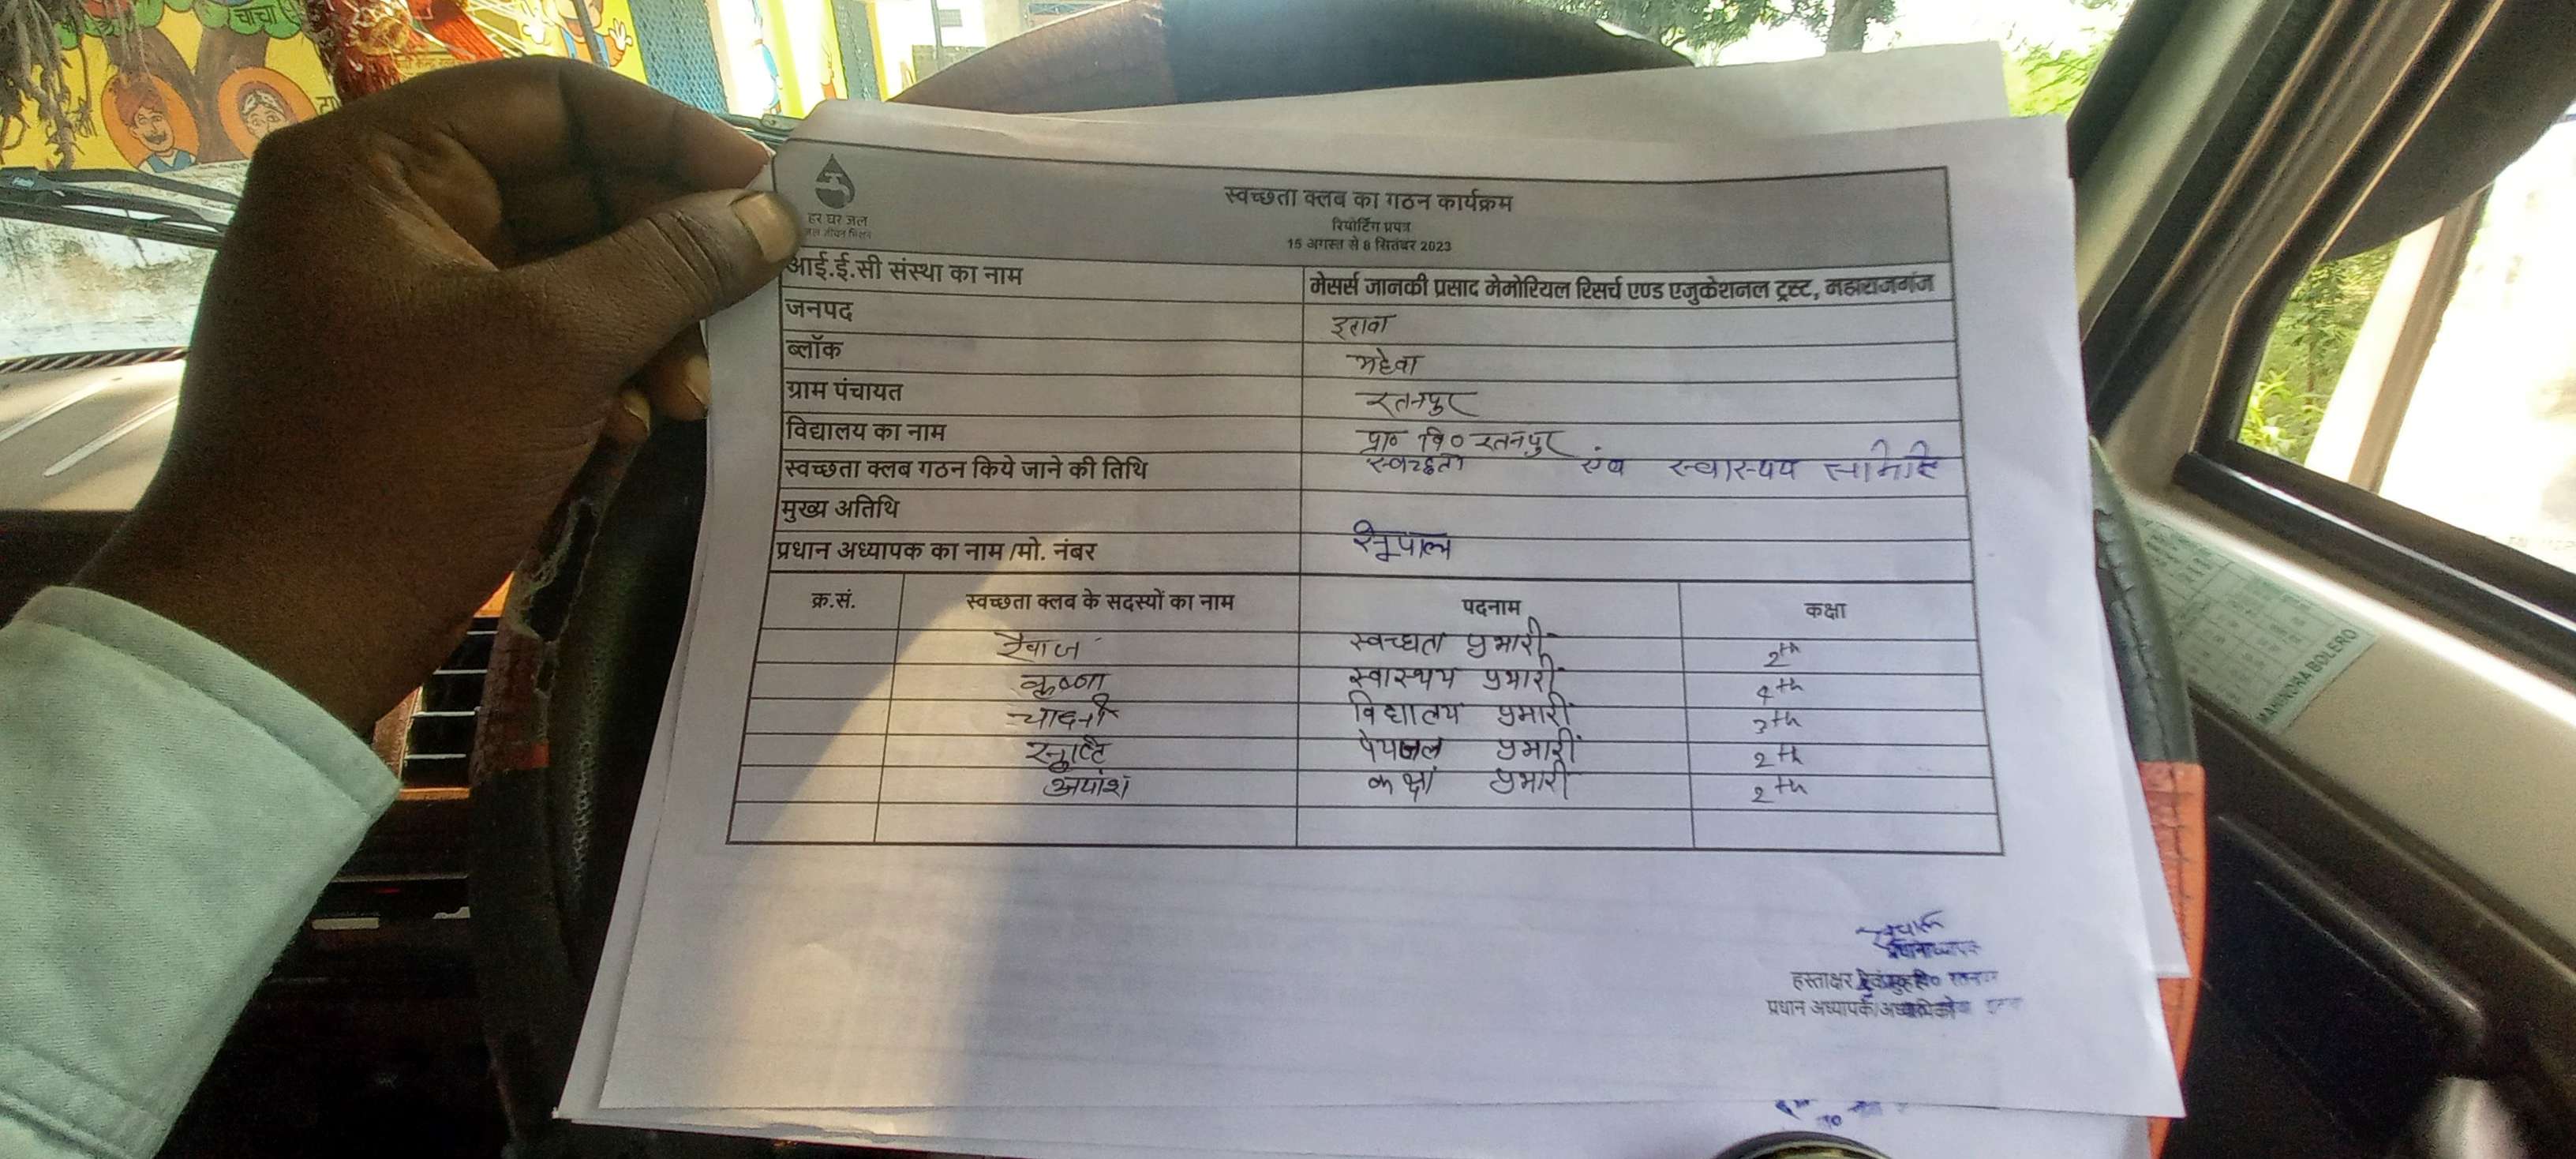 चाचा
हर घर जल
जल जीवन मिशन
स्वच्छता क्लब का गठन कार्यक्रम
रिपोर्टिंग प्रपत्र
15 अगस्त से 8 सितंबर 2023
आई.ई.सी संस्था का नाम मेसर्स जानकी प्रसाद मेमोरियल रिसर्च एण्ड एजुकेशनल ट्रस्ट, महाराजगंज
जनपद इटावा
ब्लॉक महेवा
ग्राम पंचायत रतनपुर
विद्यालय का नाम प्रा० वि० रतनपुर
स्वच्छता क्लब गठन किये जाने की तिथि स्वच्छता एंव स्वास्थय समिति
मुख्य अतिथि
प्रधान अध्यापक का नाम /मो. नंबर रेनूपाल
क्र.सं. स्वच्छता क्लब के सदस्यों का नाम पदनाम कक्षा
स्वच्छता प्रभारी 2th
कृष्णा स्वास्थय प्रभारी 4th
चादनी विद्यालय प्रभारी 3th
पेयजल प्रभारी 2th
कक्षा प्रभारी 2th
हस्ताक्षर
प्रधान अध्यापक/अध्यापिका
MAHINDRA BOLERO